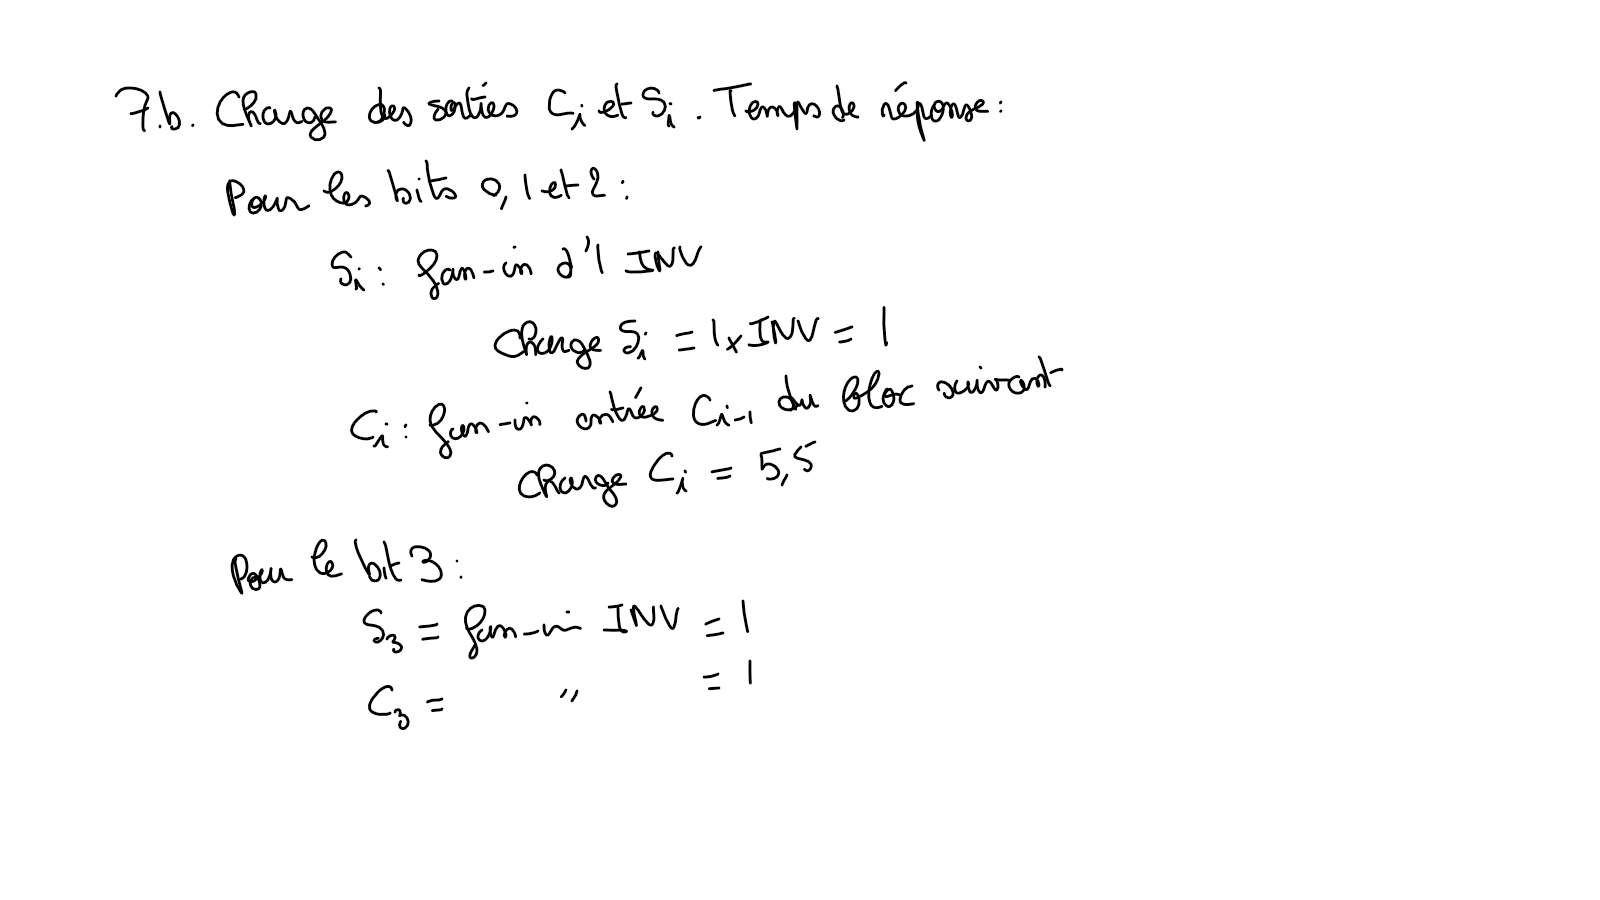 7.b. Charge des sorties Ci et Si. Temps de réponse:
Pour les bits 0, 1 et 2:
Si: fan-in d'1 INV
Charge Si = 1xINV = 1
Ci: fan-in entrée Ci-1 du bloc suivant
Charge Ci = 5,5
Pour le bit 3:
S3 = fan-in INV = 1
C3 = " = 1